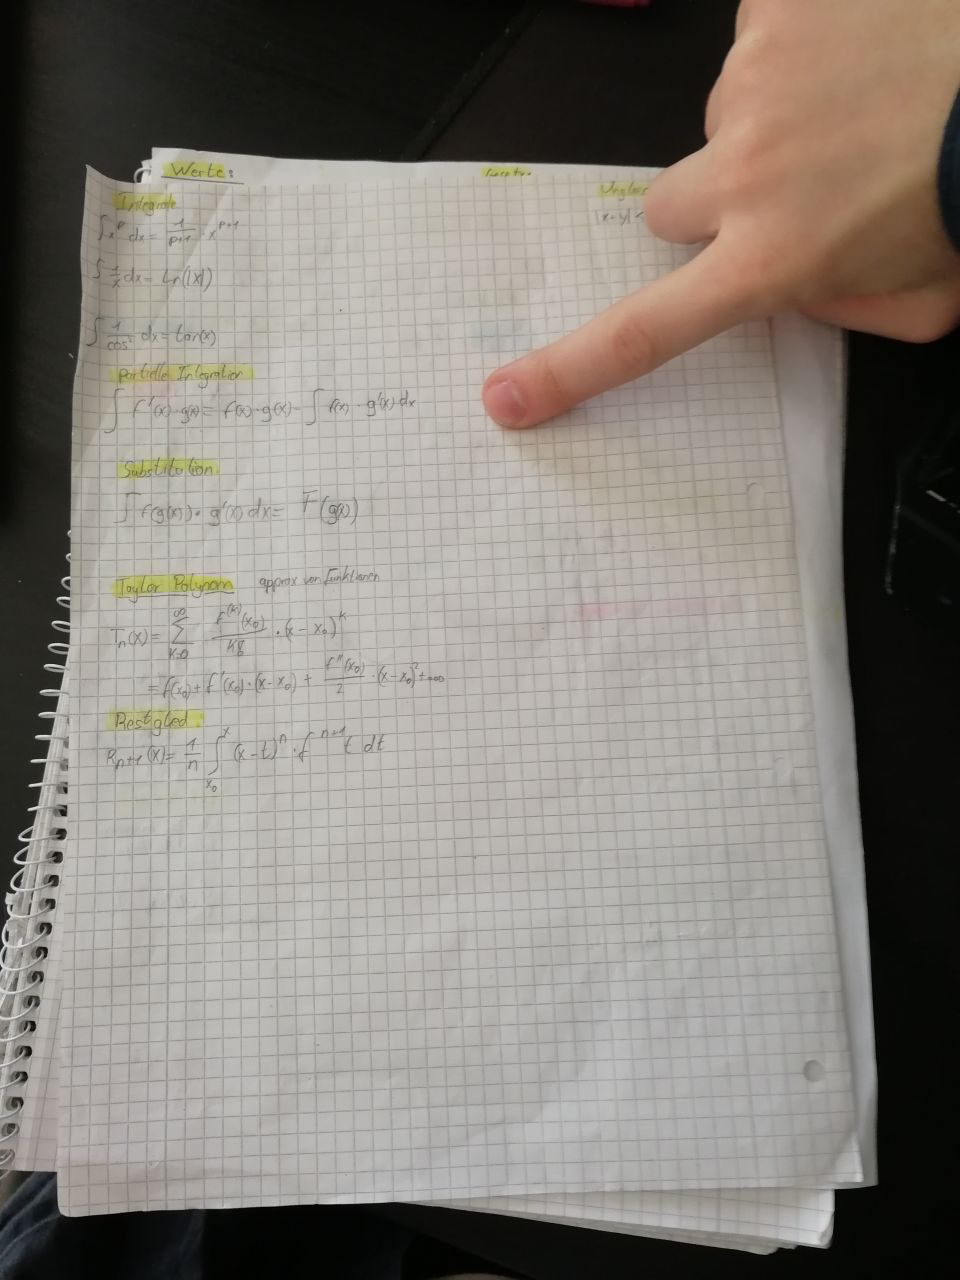 Werte:
Integrale
∫ x^p dx = 1/(p+1) · x^(p+1)
|x+y| <
∫ 1/x dx = Ln(|x|)
∫ 1/cos² dx = tan(x)
Partielle Integration
∫ f'(x)·g(x) = f(x)·g(x) - ∫ f(x)·g'(x) dx
Substitution.
∫ f(g(x))· g'(x) dx = F(g(x))
Taylor Polynom approx von Funktionen
Tn(x) = ∞ Σ k=0 f^(k)(x0)/k! ·(x-x0)^k
= f(x0) + f'(x0)·(x-x0) + f''(x0)/2 ·(x-x0)² + ...
Restglied:
Rn+1(x) = 1/n ∫ x0 x (x-t)^n · f^(n+1) t dt